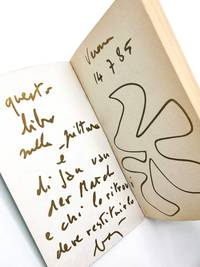 questo
libro
sulla pittura
è
di Jan van
der Marck
e chi lo ritrova
deve restituirlo
14 7 85